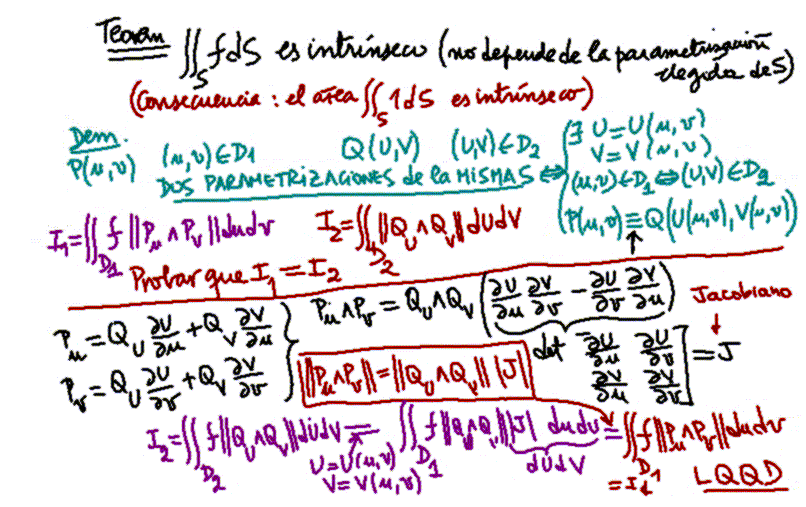 Teorem ∬_S f dS es intrínseco (no depende de la parametrización elegida de S)
(Consecuencia: el área ∬_S 1 dS es intrínseco)
Dem.
P(u,v) (u,v)∈D1 Q(U,V) (U,V)∈D2
DOS PARAMETRIZACIONES de la MISMA S ⇔
∃ U=U(u,v)
V=V(u,v)
(u,v)∈D1⇔(U,V)∈D2
P(u,v)≡Q(U(u,v),V(u,v))
I1=∬_D1 f ||Pu∧Pv|| du dv I2=∬_D2 f ||QU∧QV|| dU dV
Probar que I1=I2
Pu=QU ∂U/∂u+QV ∂V/∂u
Pv=QU ∂U/∂v+QV ∂V/∂v
Pu∧Pv=QU∧QV (∂U/∂u ∂V/∂v − ∂U/∂v ∂V/∂u)
Jacobiano
det [∂U/∂u ∂U/∂v
∂V/∂u ∂V/∂v] = J
||Pu∧Pv||=||QU∧QV|| |J|
I2=∬_D2 f||QU∧QV|| dU dV = ∬_D1 f||QU∧QV|| |J| du dv = ∬_D1 f||Pu∧Pv|| du dv
U=U(u,v)
V=V(u,v)
dU dV
=I1
LQQD